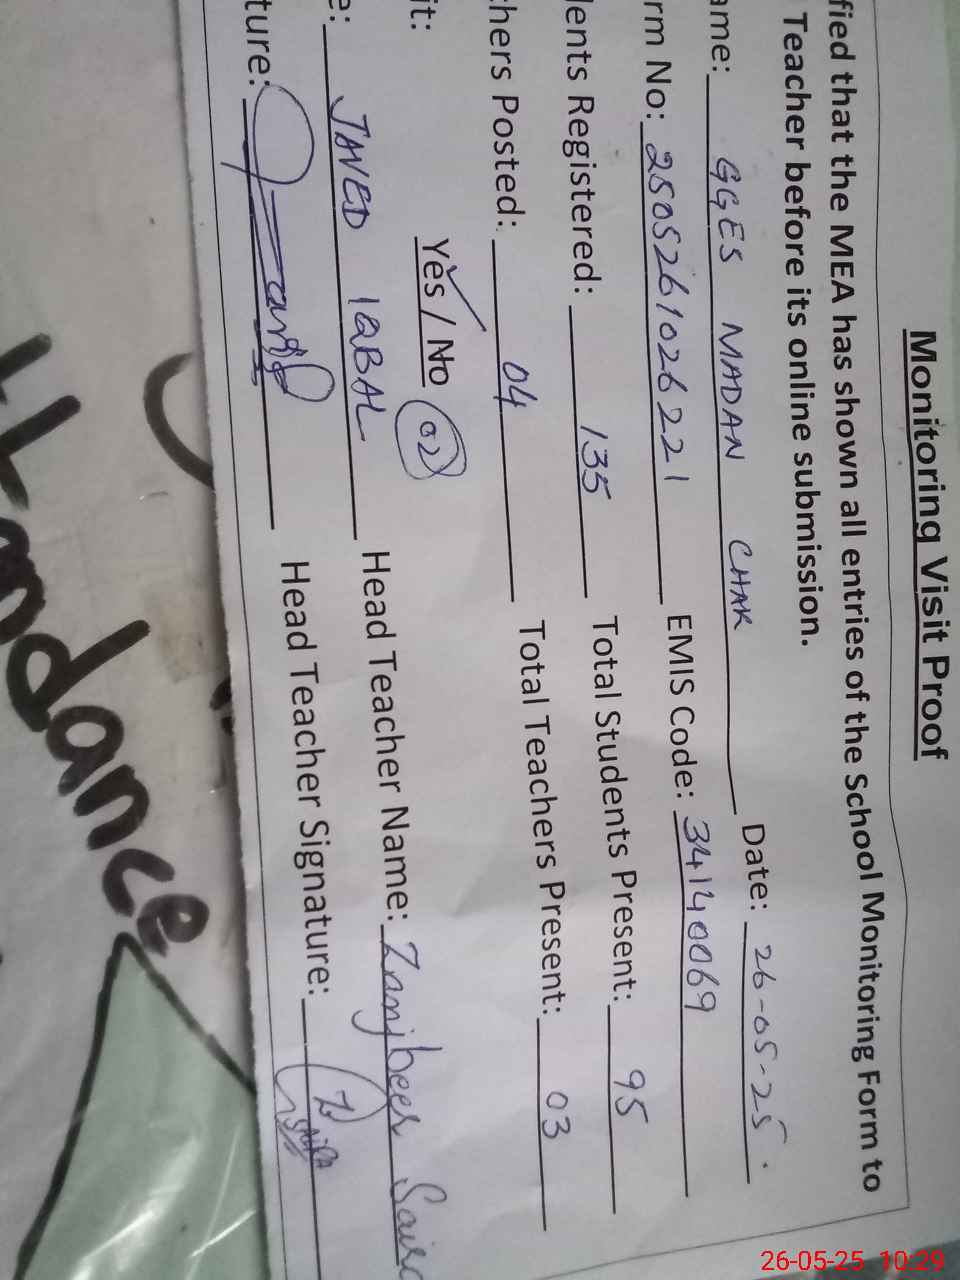 Monitoring Visit Proof
fied that the MEA has shown all entries of the School Monitoring Form to
Teacher before its online submission.
ame: GGES MADAN CHAK Date: 26-05-25
rm No: 2505261026221 EMIS Code: 34140069
lents Registered: 135 Total Students Present: 95
chers Posted: 04 Total Teachers Present: 03
it: Yes / No 02
e: JAVED IQBAL Head Teacher Name:
ture: Head Teacher Signature:
26-05-25 10:29